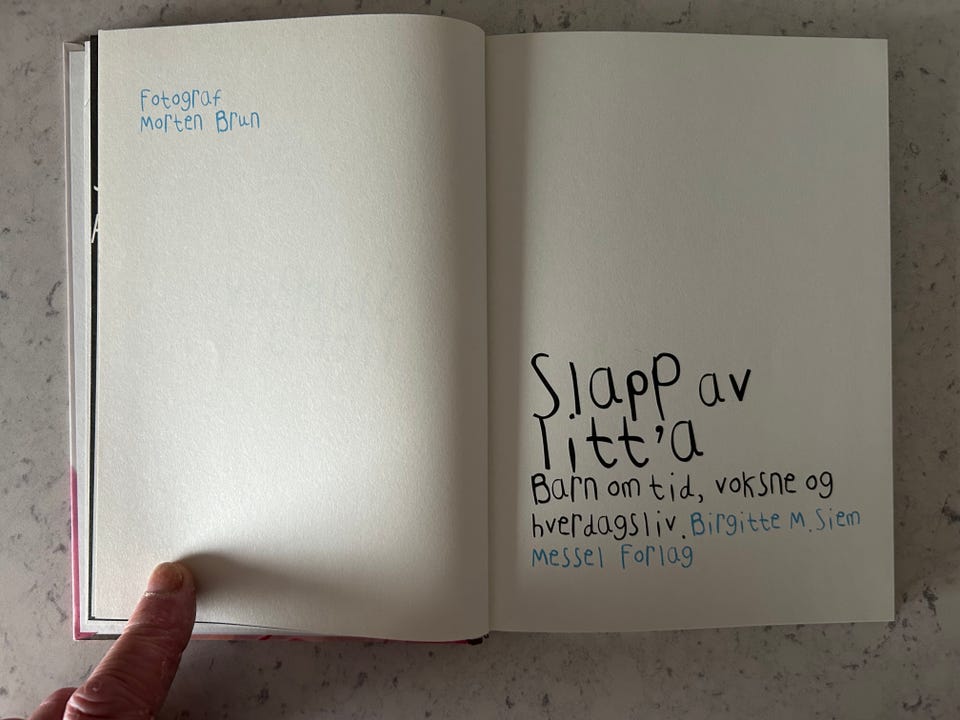 Fotograf
Morten Brun
Slapp av
litt'a
Barn om tid, voksne og
hverdagsliv. Birgitte M. Siem
Messel Forlag